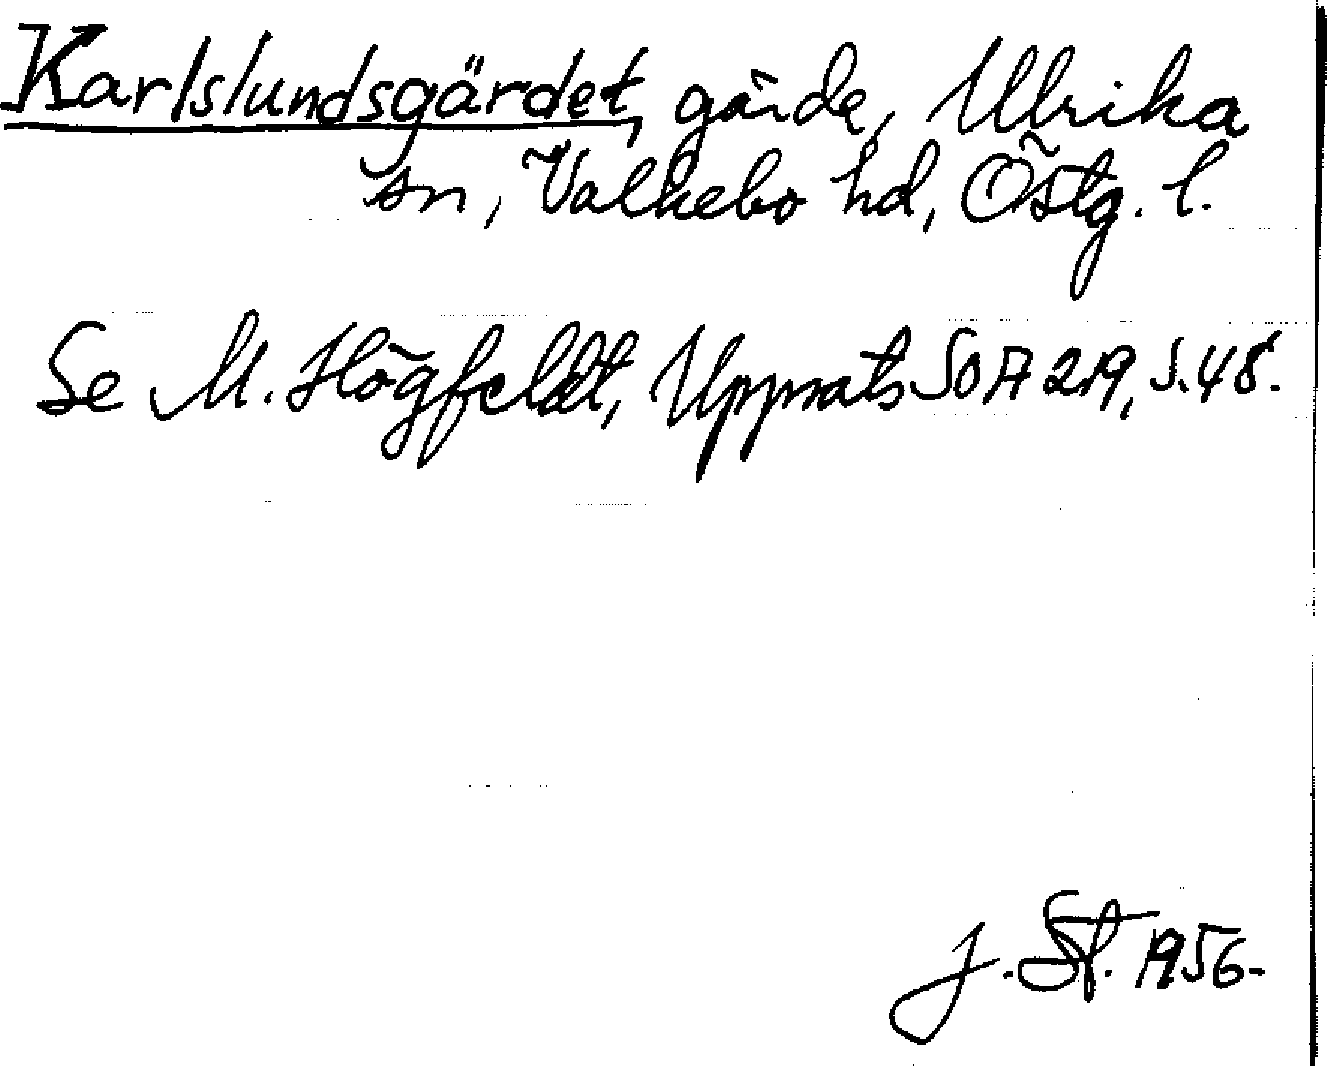 Karlslundsgärdet, gärde, Ulrika
sn, Valkebo hd, Östg. l.
Se M. Högfeldt, Uppsats SOA 219, s. 48.
J. St. 1956.